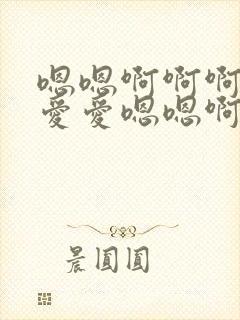 嗯嗯啊啊啊
爱爱嗯嗯啊
晨圆圆